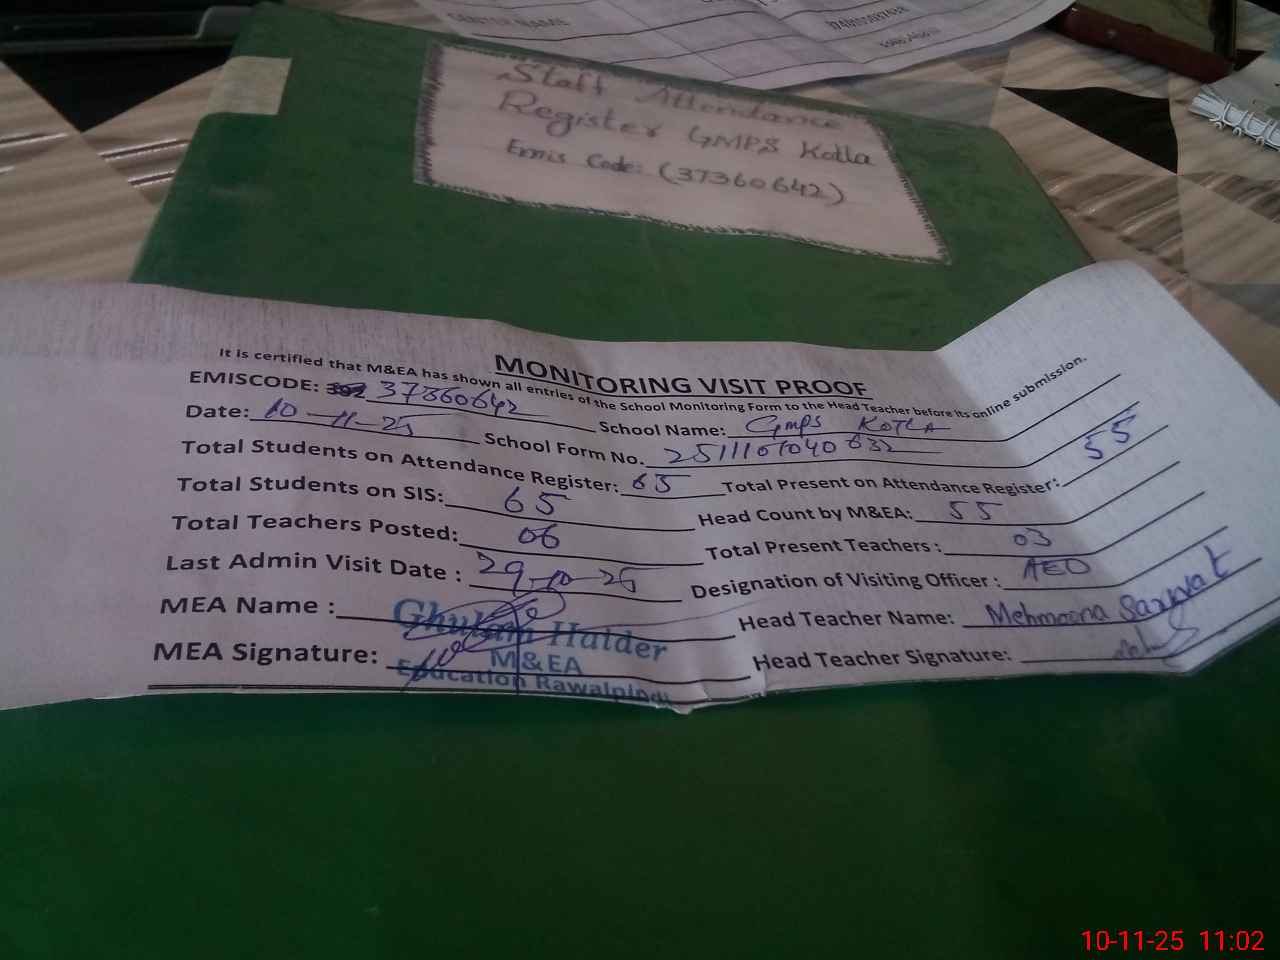 CENTER NAME
Staff Attendance
Register GMPS Kotla
Emis Code: (37360642)
MONITORING VISIT PROOF
It is certified that M&EA has shown all entries of the School Monitoring Form to the Head Teacher before its online submission.
EMISCODE: 37360642 School Name: GMPS KOTLA
Date: 10-11-25 School Form No. 2511101040632
Total Students on Attendance Register: 65 Total Present on Attendance Register: 55
Total Students on SIS: 65 Head Count by M&EA: 55
Total Teachers Posted: 06 Total Present Teachers : 03
Last Admin Visit Date : 29-10-25 Designation of Visiting Officer : AEO
MEA Name : Ghulam Haider Head Teacher Name: Mehmoona Sarwat
M&EA
MEA Signature: Head Teacher Signature:
Education Rawalpindi
10-11-25 11:02